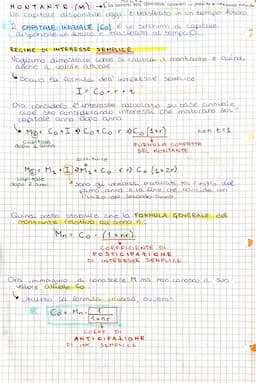 MONTANTE (M) →
Un capitale disponibile oggi è trasferito in un tempo futuro
IL CAPITALE INIZIALE (C0) è un sinonimo di capitale
disponibile in futuro e trasferito al tempo 0.
REGIME DI INTERESSE SEMPLICE
Vogliamo dimostrare come si calcola il montante e quindi
anche il valore attuale
Scrivo la formula dell'interesse semplice
I = C0 · r · t
Ora considero l'interesse calcolato su base annuale
cioè sto considerando interessi che maturano sul
capitale anno dopo anno.
M1 = C0 + I → C0 + C0 · r → C0 (1+r) con t=1
capitale
dopo 1 anno
FORMULA COMPATTA
DEL MONTANTE
M2 = M1 + I → M1 + C0 · r → C0 (1+2r)
capitale
dopo 2 anni
sono gli interessi maturati tra l'inizio del
Quindi posso stabilire che la FORMULA GENERALE del
montante relativo all'anno n:
Mn = C0 · (1+nr)
COEFFICIENTE DI
POSTICIPAZIONE
DI INTERESSE SEMPLICE
Ora immagino di conoscere M ma non conosco il suo
valore attuale C0
Utilizzo la formula inversa, ovvero:
C0 = Mn · 1/1+nr
COEFF. DI
ANTICIPAZIONE
DI INT. SEMPLICE